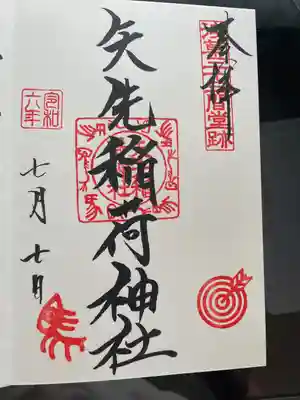 奉拝
浅草三十三間堂跡
矢先稲荷神社
令和
六年
七月七日
馬